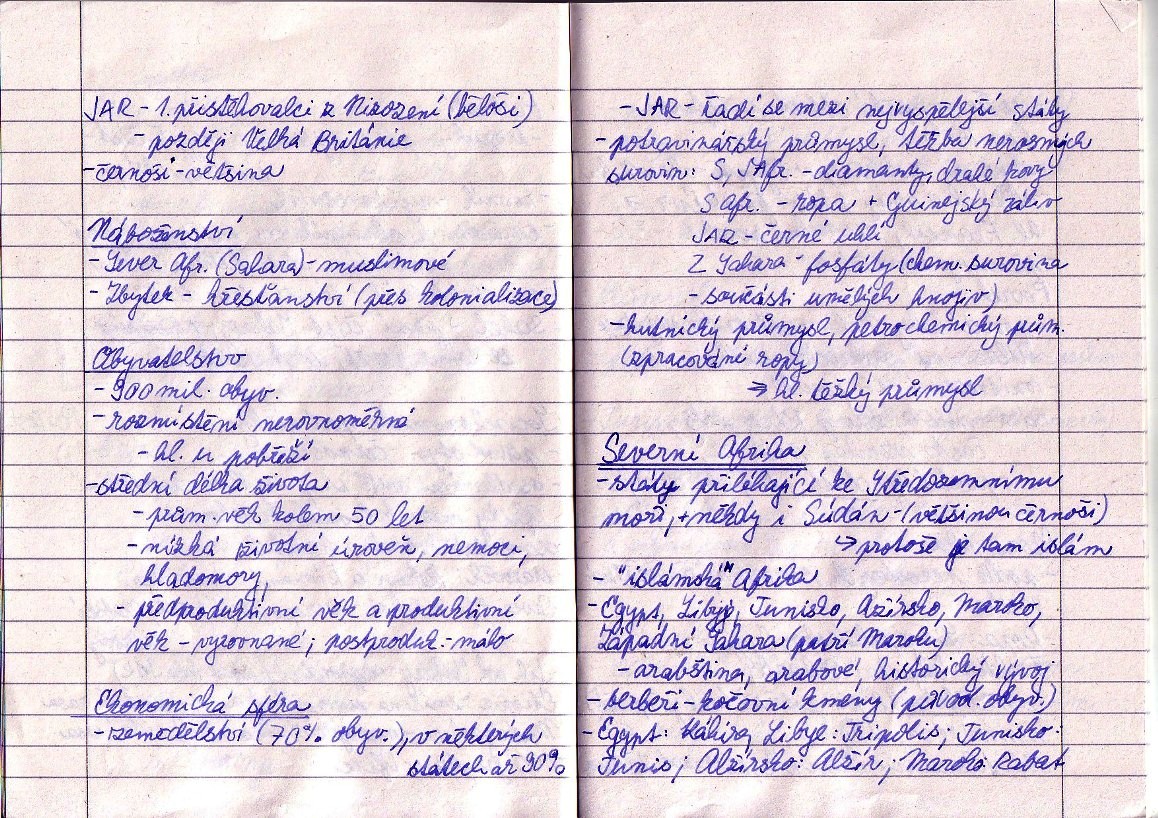 JAR - 1. přistěhovalci z Nizození (běloši)
- později Velká Británie
- černoši - většina
Náboženství
- Sever Afr. (Sahara) - muslimové
- Zbytek - křesťanství (přes kolonializace)
Obyvatelstvo
- 900 mil. obyv.
- rozmístění nerovnoměrné
- hl. u pobřeží
- střední délka života
- prům. věk kolem 50 let
- nízká životní úroveň, nemoci,
hladomory,
- předproduktivní věk a produktivní
věk - vyrovnané; postproduk. - málo
Ekonomická sféra
- zemědělství (70% obyv.), v některých
státech až 90%
- JAR - řadí se mezi nejvyspělejší státy
- potravinářský průmysl, těžba nerosných
surovin: S, JAfr. - diamanty, drahé kovy
S afr. - ropa + Guinejský záliv
JAR - černé uhlí
Z Sahara - fosfáty (chem. surovina
- součásti umělých hnojiv)
- hutnický průmysl, petrochemický prům.
(zpracování ropy)
⇒ hl. těžký průmysl
Severní Afrika
- státy přiléhající ke Středozemnímu
moři, + někdy i Súdán - (většinou černoši)
↳ protože je tam islám
- "islámská" Afrika
- Egypt, Libye, Tunisko, Alžírsko, Maroko,
Západní Sahara (patří Maroku)
- arabština, arabové, historický vývoj
- berbeři - kočovní kmeny (původ. obyv.)
- Egypt: Káhira, Libye: Tripolis; Tunisko:
Tunis; Alžírsko: Alžír; Maroko: Rabat